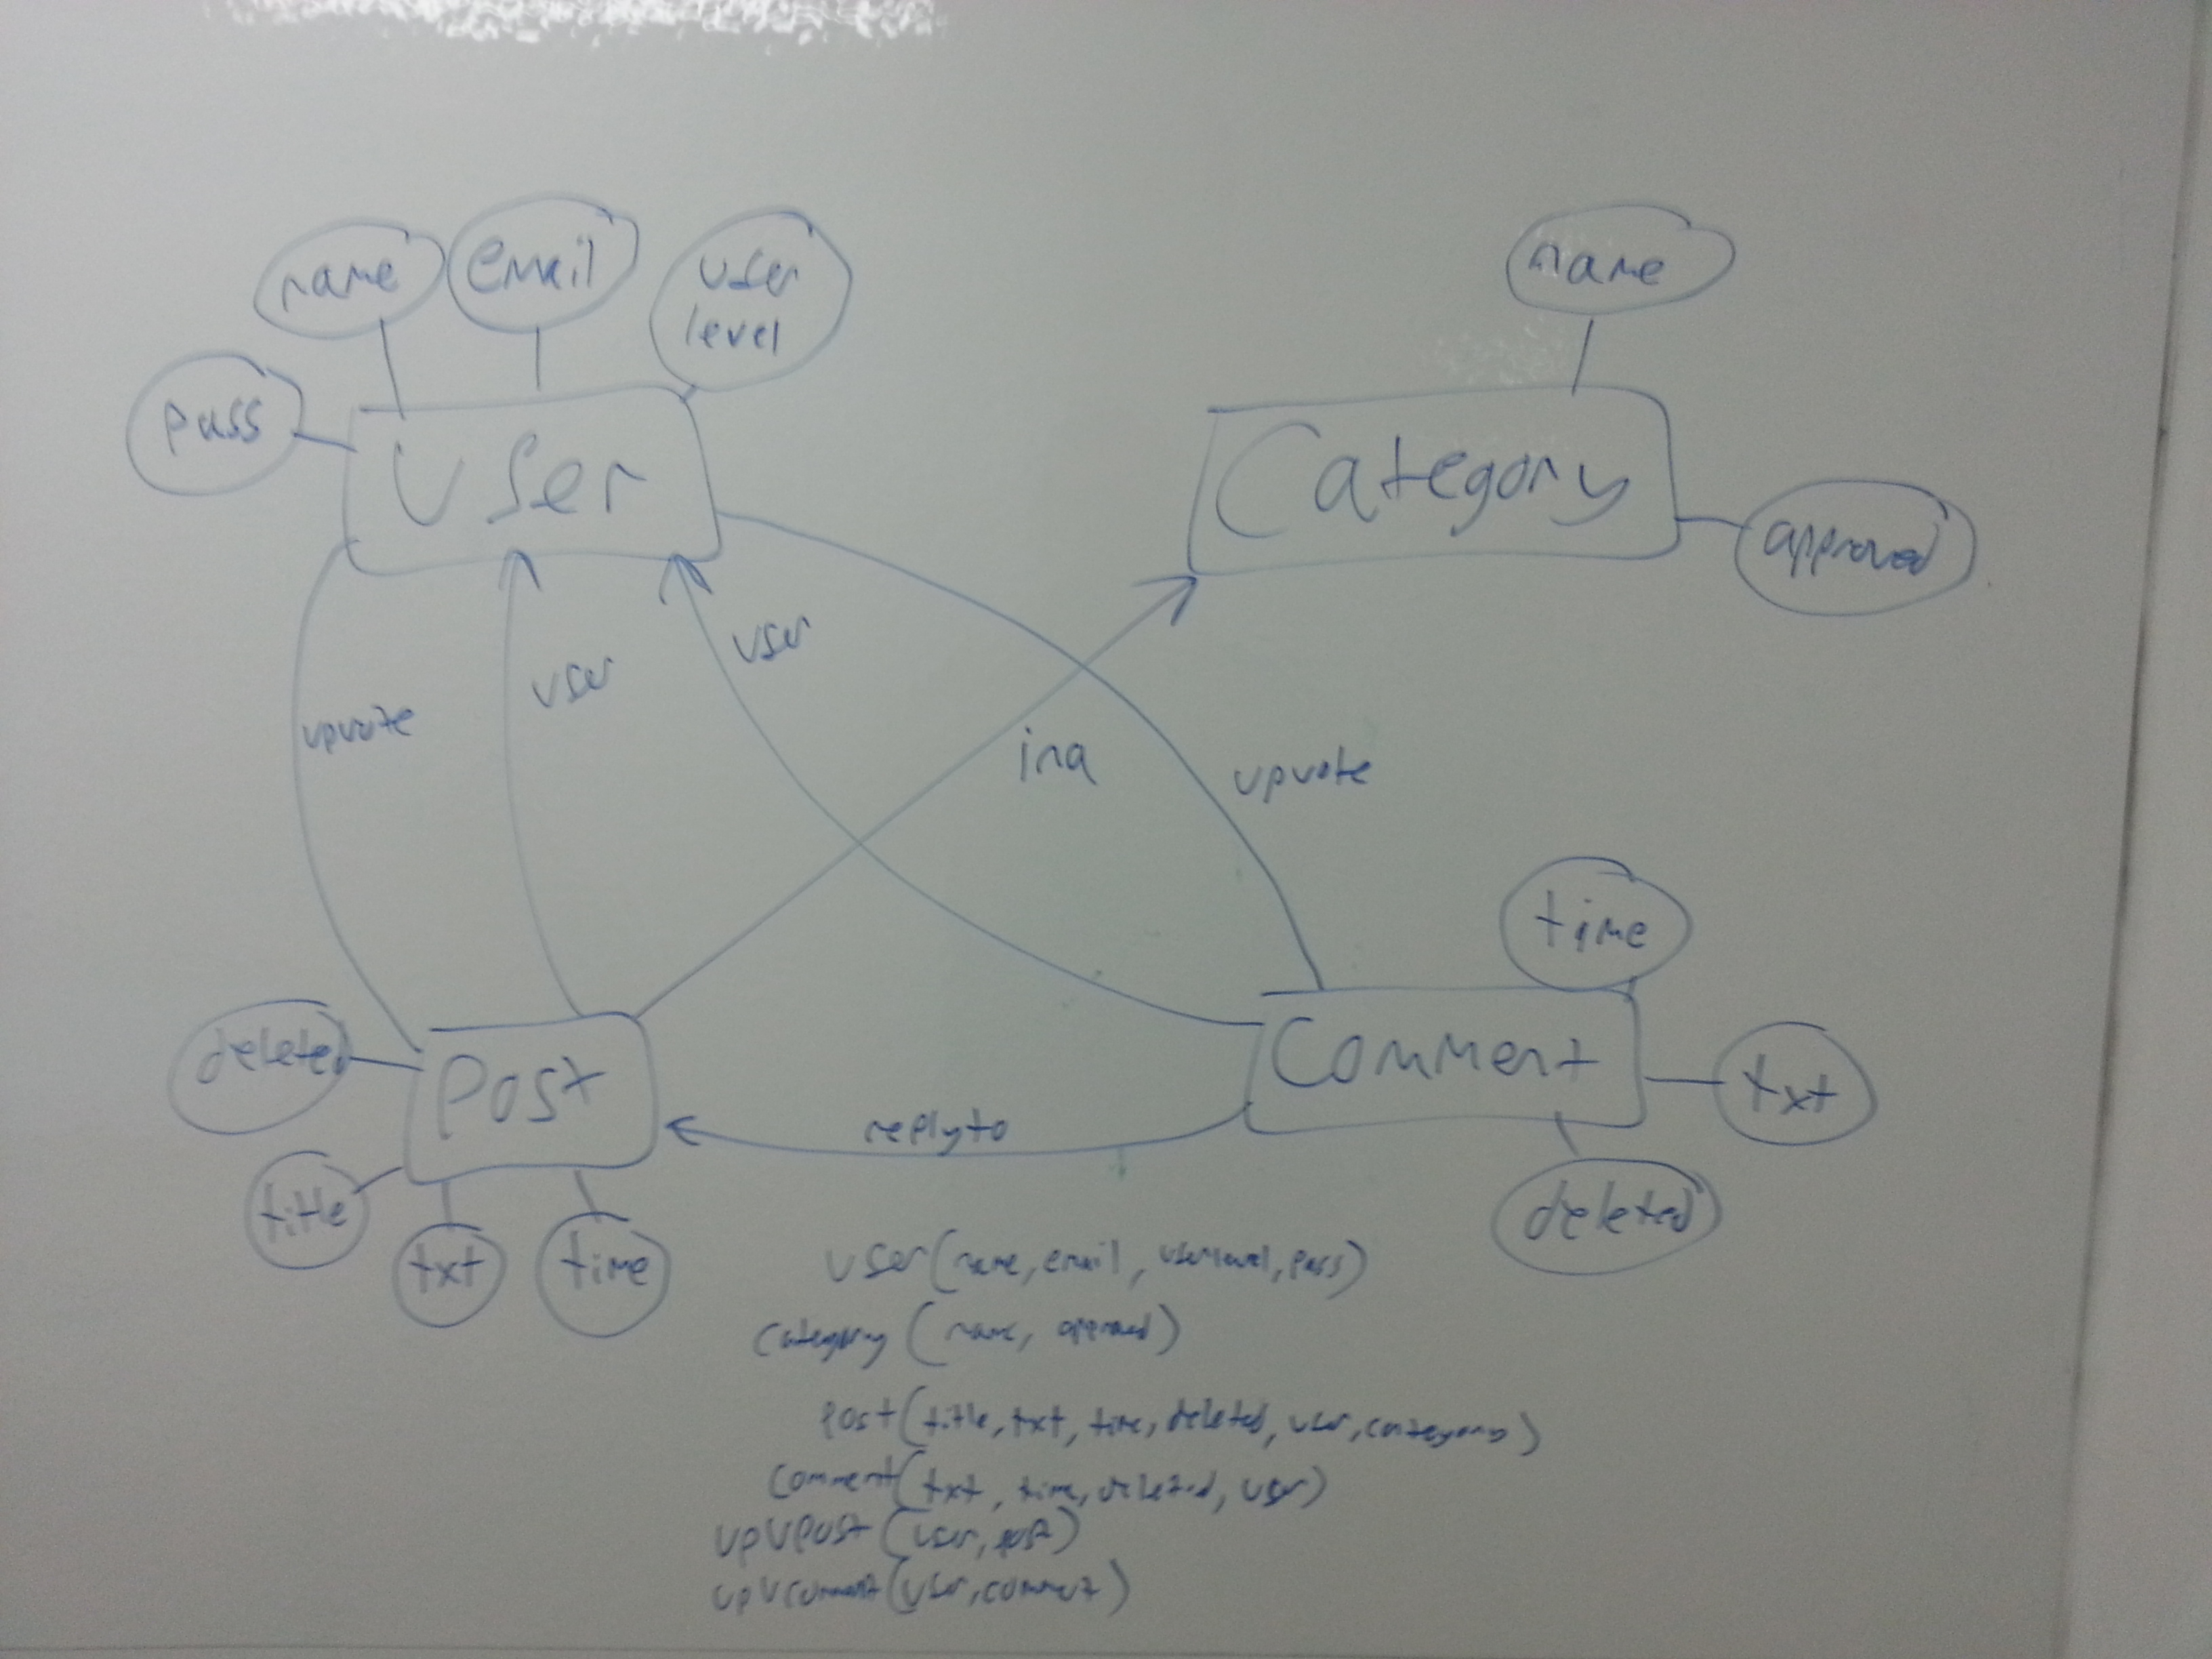 name
email
user
level
pass
User
name
Category
approved
upvote
user
user
ina
upvote
time
Comment
txt
deleted
deleted
Post
replyto
title
txt
time
User(name, email, userlevel, pass)
Category (name, approved)
Post(title, txt, time, deleted, user, category)
Comment(txt, time, deleted, user)
UpVPost (user, post)
UpVComment(user, comment)